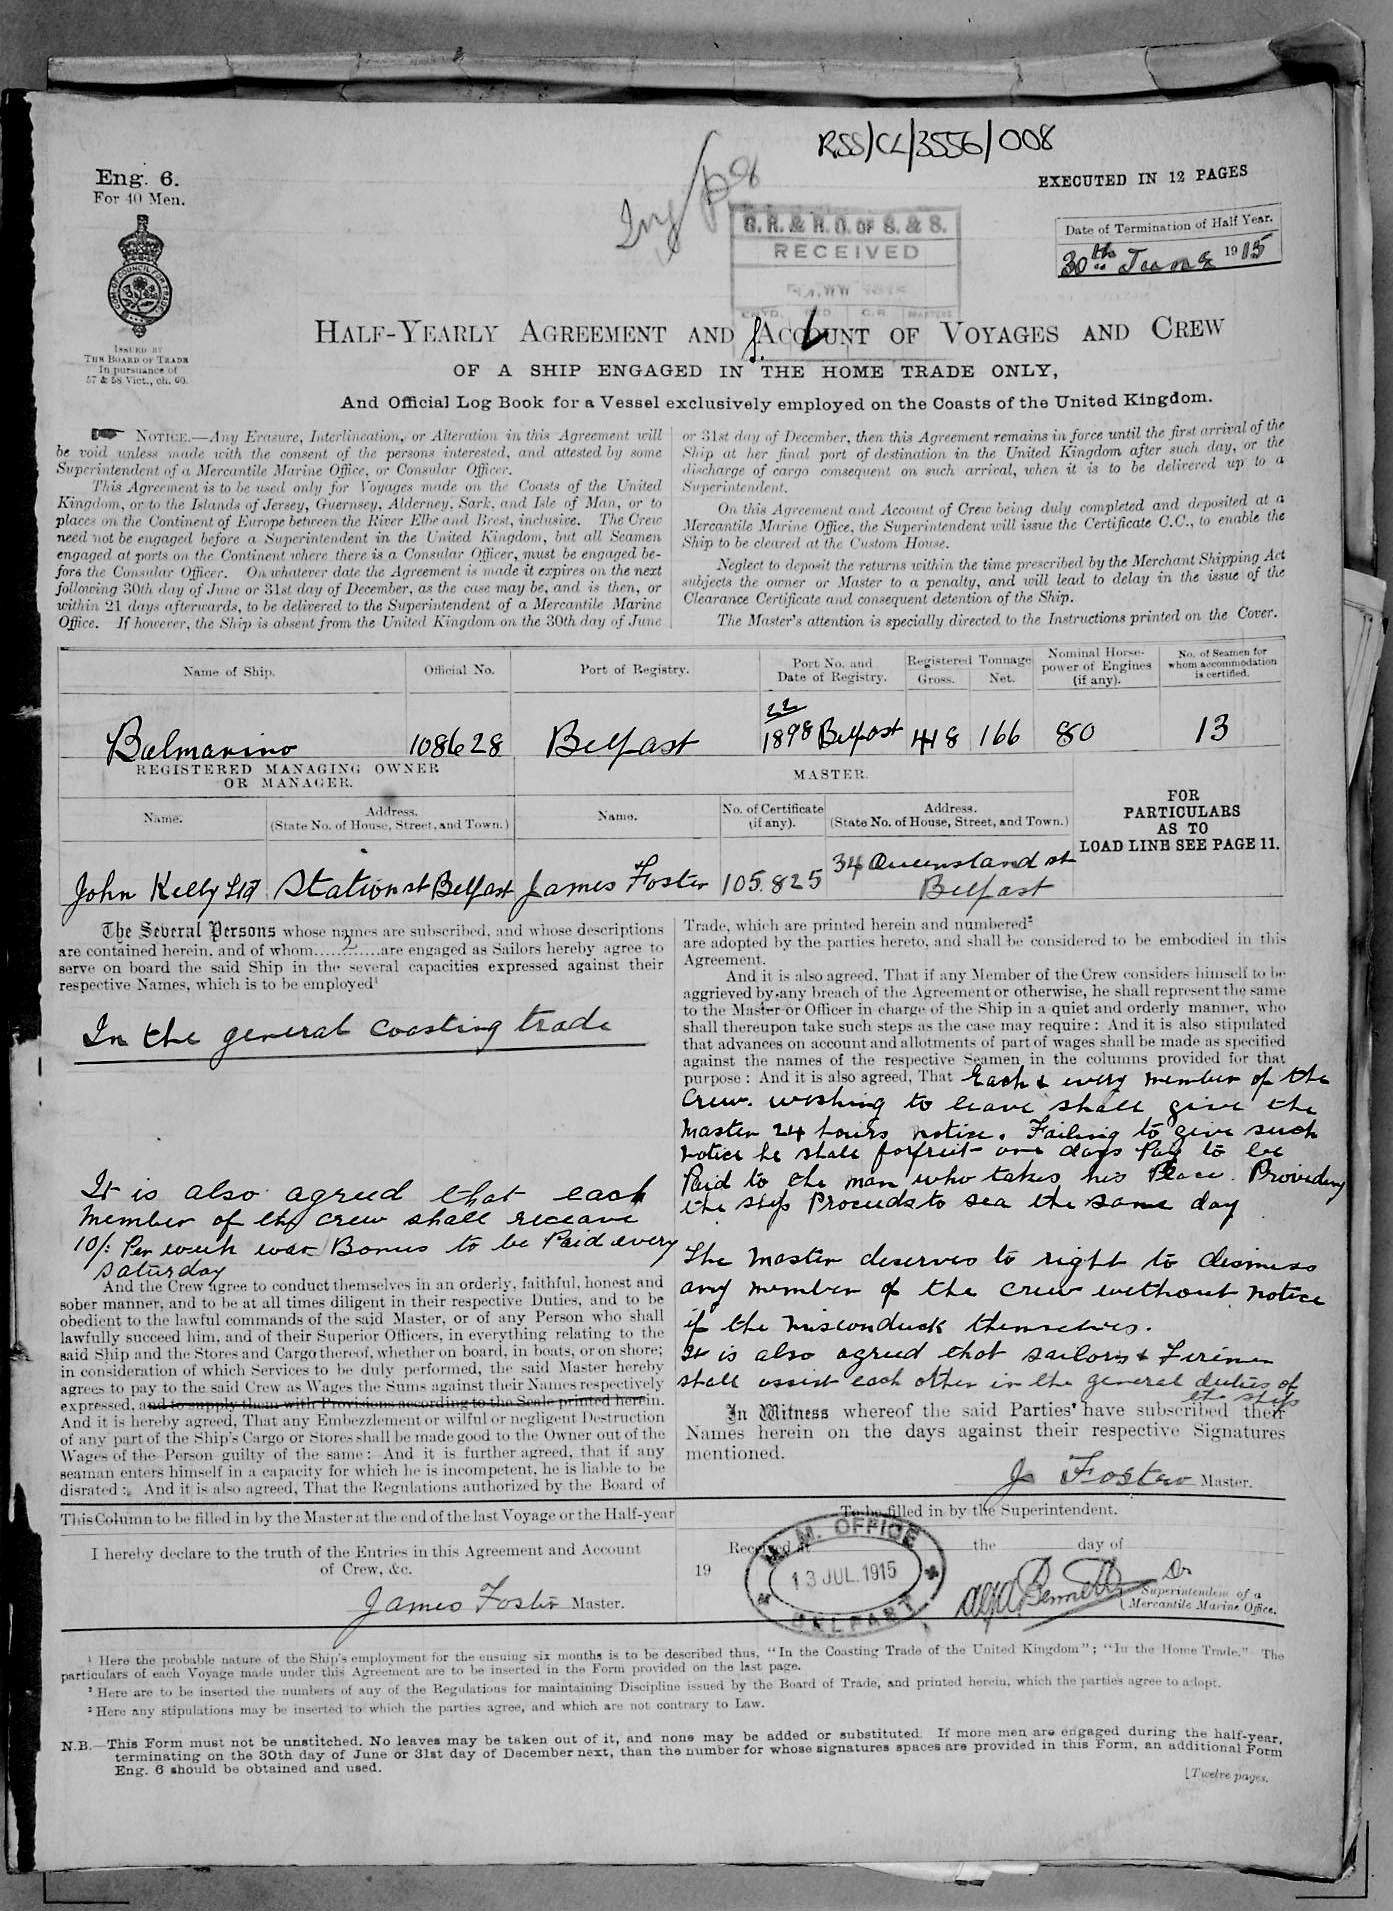 RSS/CL/3556/008
Eng. 6.
For 40 Men.
EXECUTED IN 12 PAGES
G.R. & R.O. OF S. & S.
RECEIVED
Date of Termination of Half Year.
30th June 1915
ISSUED BY
THE BOARD OF TRADE
In pursuance of
57 & 58 Vict., ch. 60.
HALF-YEARLY AGREEMENT AND ACCOUNT OF VOYAGES AND CREW
OF A SHIP ENGAGED IN THE HOME TRADE ONLY,
And Official Log Book for a Vessel exclusively employed on the Coasts of the United Kingdom.
NOTICE.—Any Erasure, Interlineation, or Alteration in this Agreement will
be void unless made with the consent of the persons interested, and attested by some
Superintendent of a Mercantile Marine Office, or Consular Officer.
This Agreement is to be used only for Voyages made on the Coasts of the United
Kingdom, or to the Islands of Jersey, Guernsey, Alderney, Sark, and Isle of Man, or to
places on the Continent of Europe between the River Elbe and Brest, inclusive. The Crew
need not be engaged before a Superintendent in the United Kingdom, but all Seamen
engaged at ports on the Continent where there is a Consular Officer, must be engaged be-
fore the Consular Officer. On whatever date the Agreement is made it expires on the next
following 30th day of June or 31st day of December, as the case may be, and is then, or
within 21 days afterwards, to be delivered to the Superintendent of a Mercantile Marine
Office. If however, the Ship is absent from the United Kingdom on the 30th day of June
or 31st day of December, then this Agreement remains in force until the first arrival of the
Ship at her final port of destination in the United Kingdom after such day, or the
discharge of cargo consequent on such arrival, when it is to be delivered up to a
Superintendent.
On this Agreement and Account of Crew being duly completed and deposited at a
Mercantile Marine Office, the Superintendent will issue the Certificate C.C., to enable the
Ship to be cleared at the Custom House.
Neglect to deposit the returns within the time prescribed by the Merchant Shipping Act
subjects the owner or Master to a penalty, and will lead to delay in the issue of the
Clearance Certificate and consequent detention of the Ship.
The Master's attention is specially directed to the Instructions printed on the Cover.
Name of Ship. Official No. Port of Registry. Port No. and Date of Registry. Registered Tonnage Gross. Net. Nominal Horse-power of Engines (if any). No. of Seamen for whom accommodation is certified.
22
Balmarino 108628 Belfast 1898 Belfast 418 166 80 13
REGISTERED MANAGING OWNER
OR MANAGER.
MASTER.
FOR
PARTICULARS
AS TO
LOAD LINE SEE PAGE 11.
Name. Address. (State No. of House, Street, and Town.) Name. No. of Certificate (if any). Address. (State No. of House, Street, and Town.)
John Kelly Ltd Station st Belfast James Foster 105.825 34 Queensland st
Belfast
The Several Persons whose names are subscribed, and whose descriptions
are contained herein, and of whom 2 are engaged as Sailors hereby agree to
serve on board the said Ship in the several capacities expressed against their
respective Names, which is to be employed¹
In the general coasting trade
It is also agreed that each
Member of the crew shall receave
10/: Per week war Bonus to be Paid every
Saturday
And the Crew agree to conduct themselves in an orderly, faithful, honest and
sober manner, and to be at all times diligent in their respective Duties, and to be
obedient to the lawful commands of the said Master, or of any Person who shall
lawfully succeed him, and of their Superior Officers, in everything relating to the
said Ship and the Stores and Cargo thereof, whether on board, in boats, or on shore;
in consideration of which Services to be duly performed, the said Master hereby
agrees to pay to the said Crew as Wages the Sums against their Names respectively
expressed, and to supply them with Provisions according to the Scale printed herein.
And it is hereby agreed, That any Embezzlement or wilful or negligent Destruction
of any part of the Ship's Cargo or Stores shall be made good to the Owner out of the
Wages of the Person guilty of the same: And it is further agreed, that if any
seaman enters himself in a capacity for which he is incompetent, he is liable to be
disrated: And it is also agreed, That the Regulations authorized by the Board of
Trade, which are printed herein and numbered²
are adopted by the parties hereto, and shall be considered to be embodied in this
Agreement.
And it is also agreed, That if any Member of the Crew considers himself to be
aggrieved by any breach of the Agreement or otherwise, he shall represent the same
to the Master or Officer in charge of the Ship in a quiet and orderly manner, who
shall thereupon take such steps as the case may require: And it is also stipulated
that advances on account and allotments of part of wages shall be made as specified
against the names of the respective Seamen in the columns provided for that
purpose: And it is also agreed, That Each & every member of the
Crew. wishing to leave shall give the
Master 24 hours notise. Failing to give such
notice he shall forfeit one days Pay to be
Paid to the man who takes his Place. Providing
the ship Proceeds to sea the same day
The Master deserves to right to dismiss
any member of the crew without notice
if the misconduck themselves.
It is also agreed that sailors & Firemen
shall assist each other in the general duties of
the ship
In Witness whereof the said Parties have subscribed their
Names herein on the days against their respective Signatures
mentioned.
J Foster Master.
This Column to be filled in by the Master at the end of the last Voyage or the Half-year
I hereby declare to the truth of the Entries in this Agreement and Account
of Crew, &c.
James Foster Master.
To be filled in by the Superintendent.
Received at the day of
19
M. M. OFFICE
13 JUL. 1915
BELFAST
Superintendent of a
Mercantile Marine Office.
¹ Here the probable nature of the Ship's employment for the ensuing six months is to be described thus, "In the Coasting Trade of the United Kingdom"; "In the Home Trade." The
particulars of each Voyage made under this Agreement are to be inserted in the Form provided on the last page.
² Here are to be inserted the numbers of any of the Regulations for maintaining Discipline issued by the Board of Trade, and printed herein, which the parties agree to adopt.
³ Here any stipulations may be inserted to which the parties agree, and which are not contrary to Law.
N.B.—This Form must not be unstitched. No leaves may be taken out of it, and none may be added or substituted. If more men are engaged during the half-year,
terminating on the 30th day of June or 31st day of December next, than the number for whose signatures spaces are provided in this Form, an additional Form
Eng. 6 should be obtained and used.
[Twelve pages.